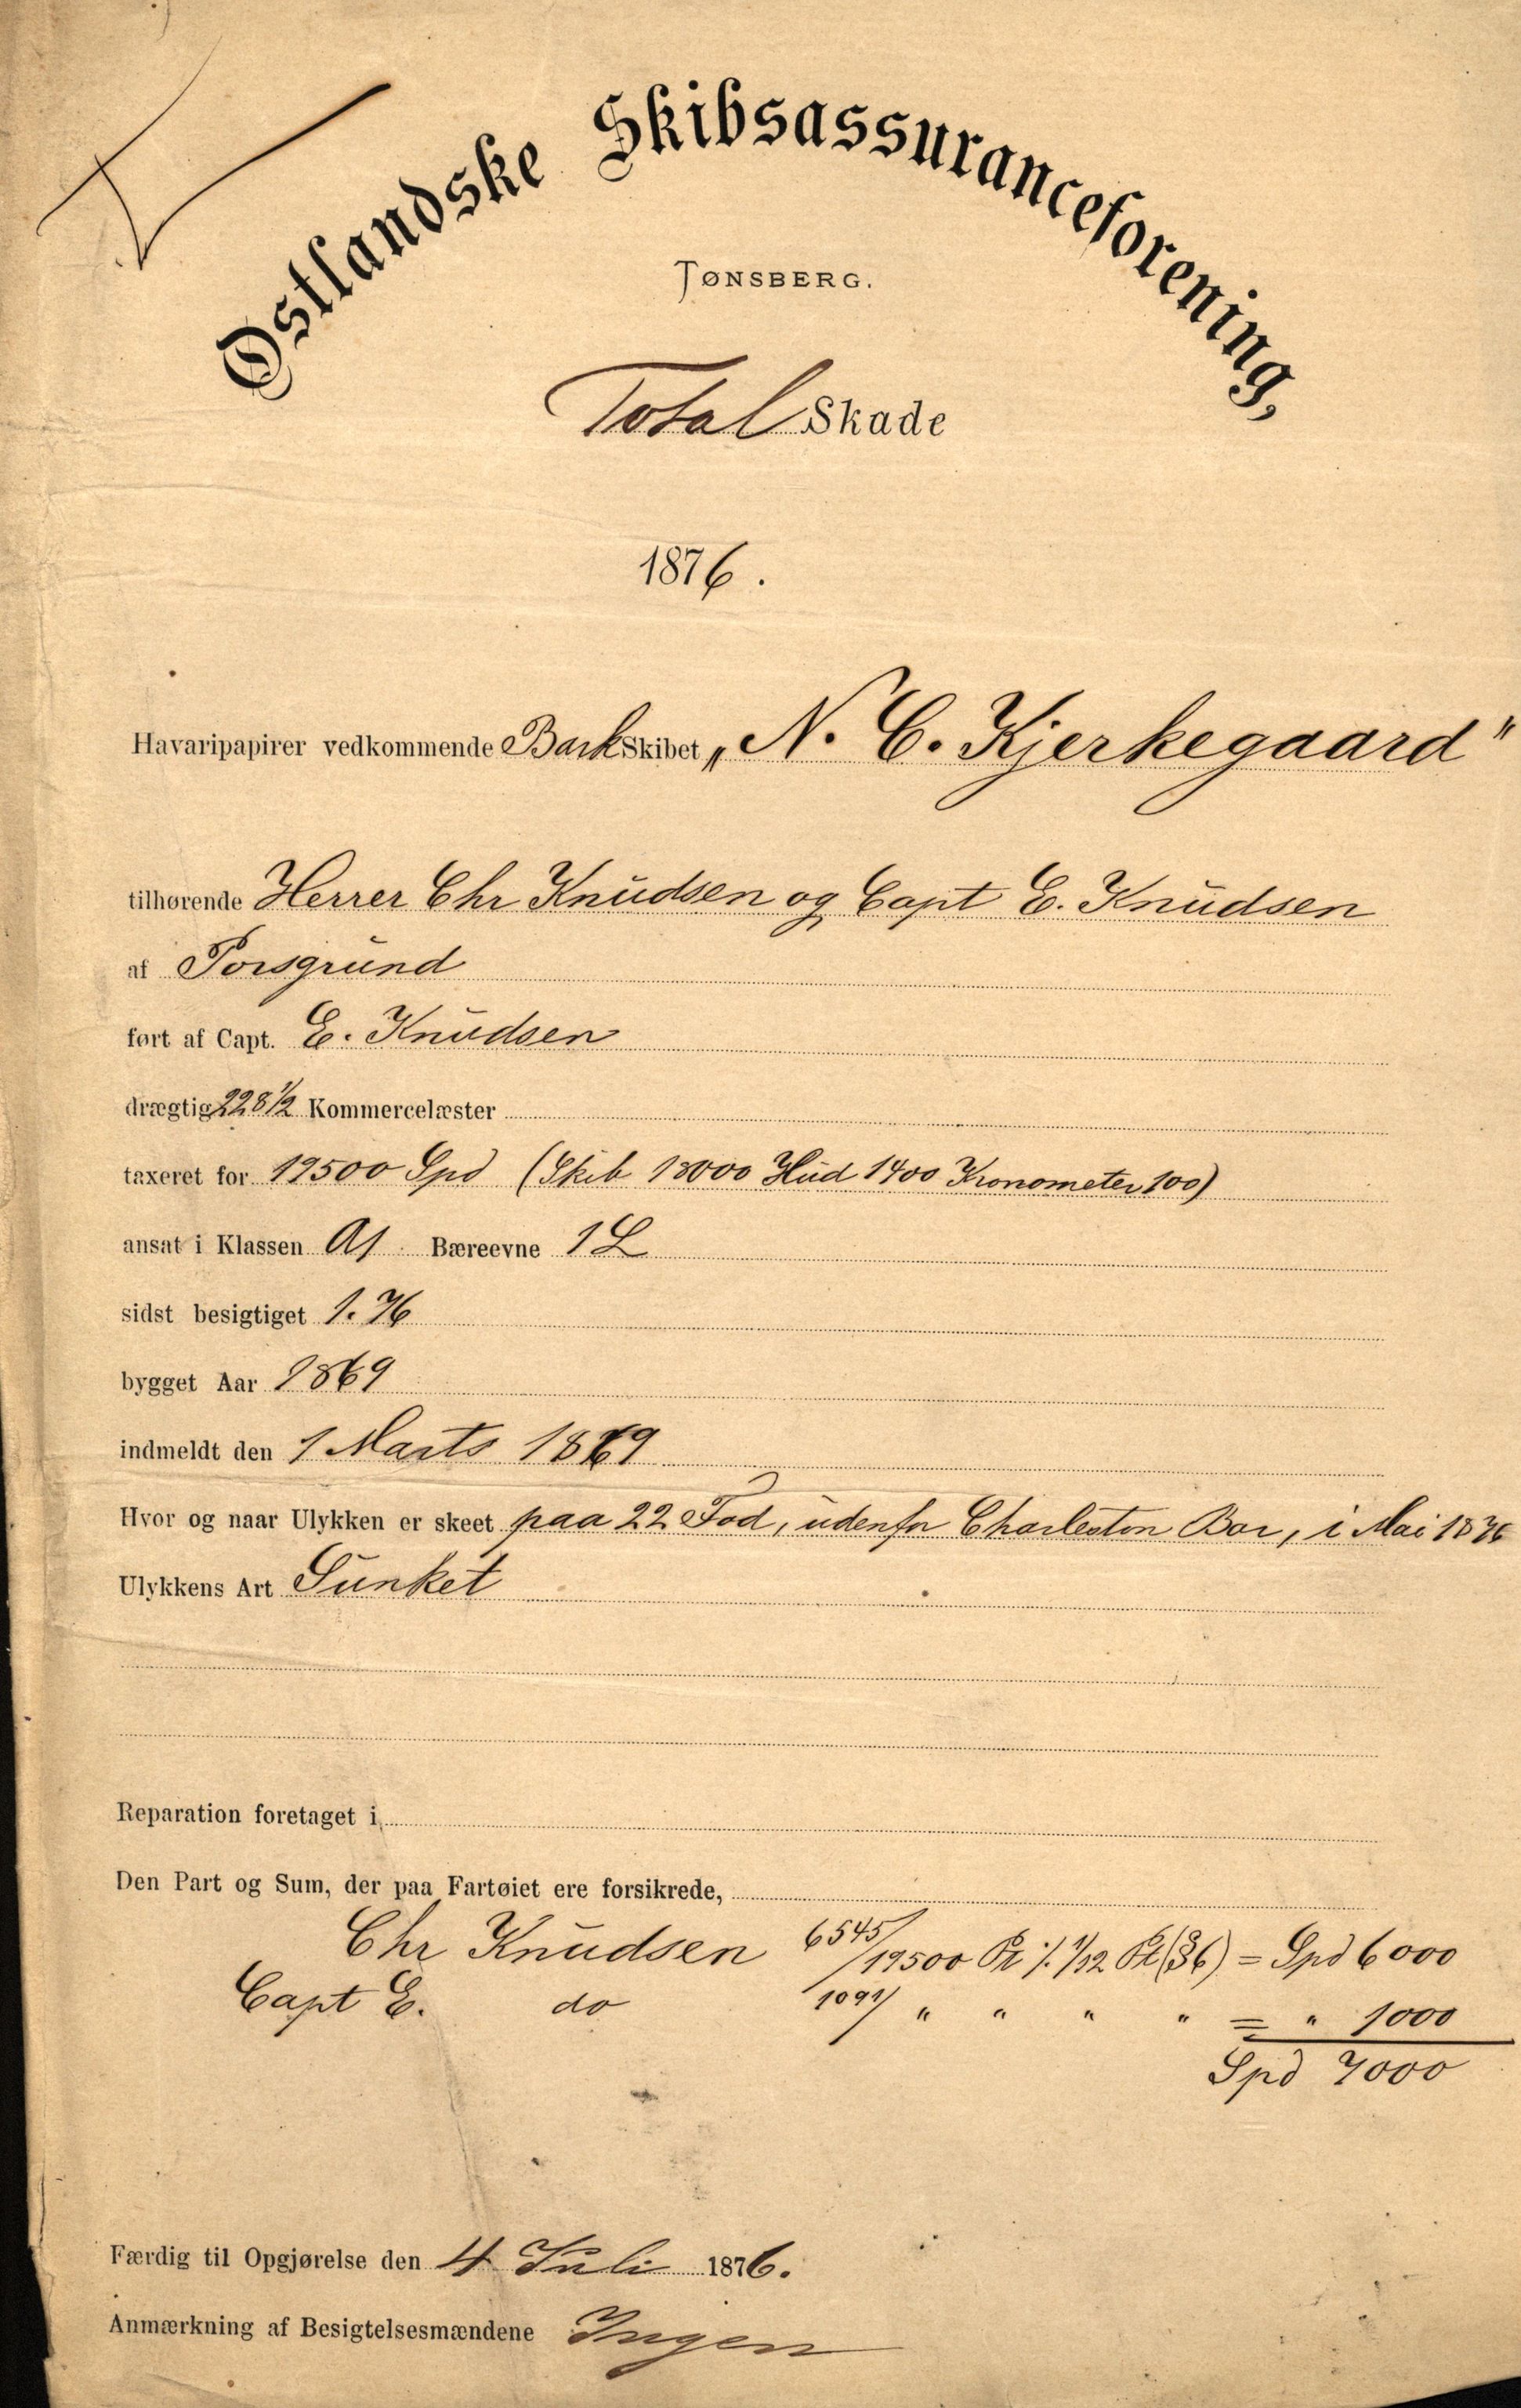 Østlandske Skibsassuranceforening,
TØNSBERG.
Total Skade
1876.
Havaripapirer vedkommende Bark Skibet „N. C. Kjerkegaard"
tilhørende Herrer Chr Knudsen og Capt E. Knudsen
af Porsgrund
ført af Capt. E. Knudsen
drægtig 228 1/2 Kommercelæster
taxeret for 19500 Spd (Skib 18000 Hud 1400 Kronometer 100)
ansat i Klassen A1 Bæreevne 1 L
sidst besigtiget 1.76
bygget Aar 1869
indmeldt den 1 Marts 1869
Hvor og naar Ulykken er skeet paa 22 Fod, udenfor Charleston Bar, i Mai 1876
Ulykkens Art Sunket
Reparation foretaget i
Den Part og Sum, der paa Fartøiet ere forsikrede,
Chr Knudsen 6545/19500 1/12 = Spd 6000
Capt E. do 1091/ " " " " = " 1000
Spd 7000
Færdig til Opgjørelse den 4 Juli 1876.
Anmærkning af Besigtelsesmændene Ingen